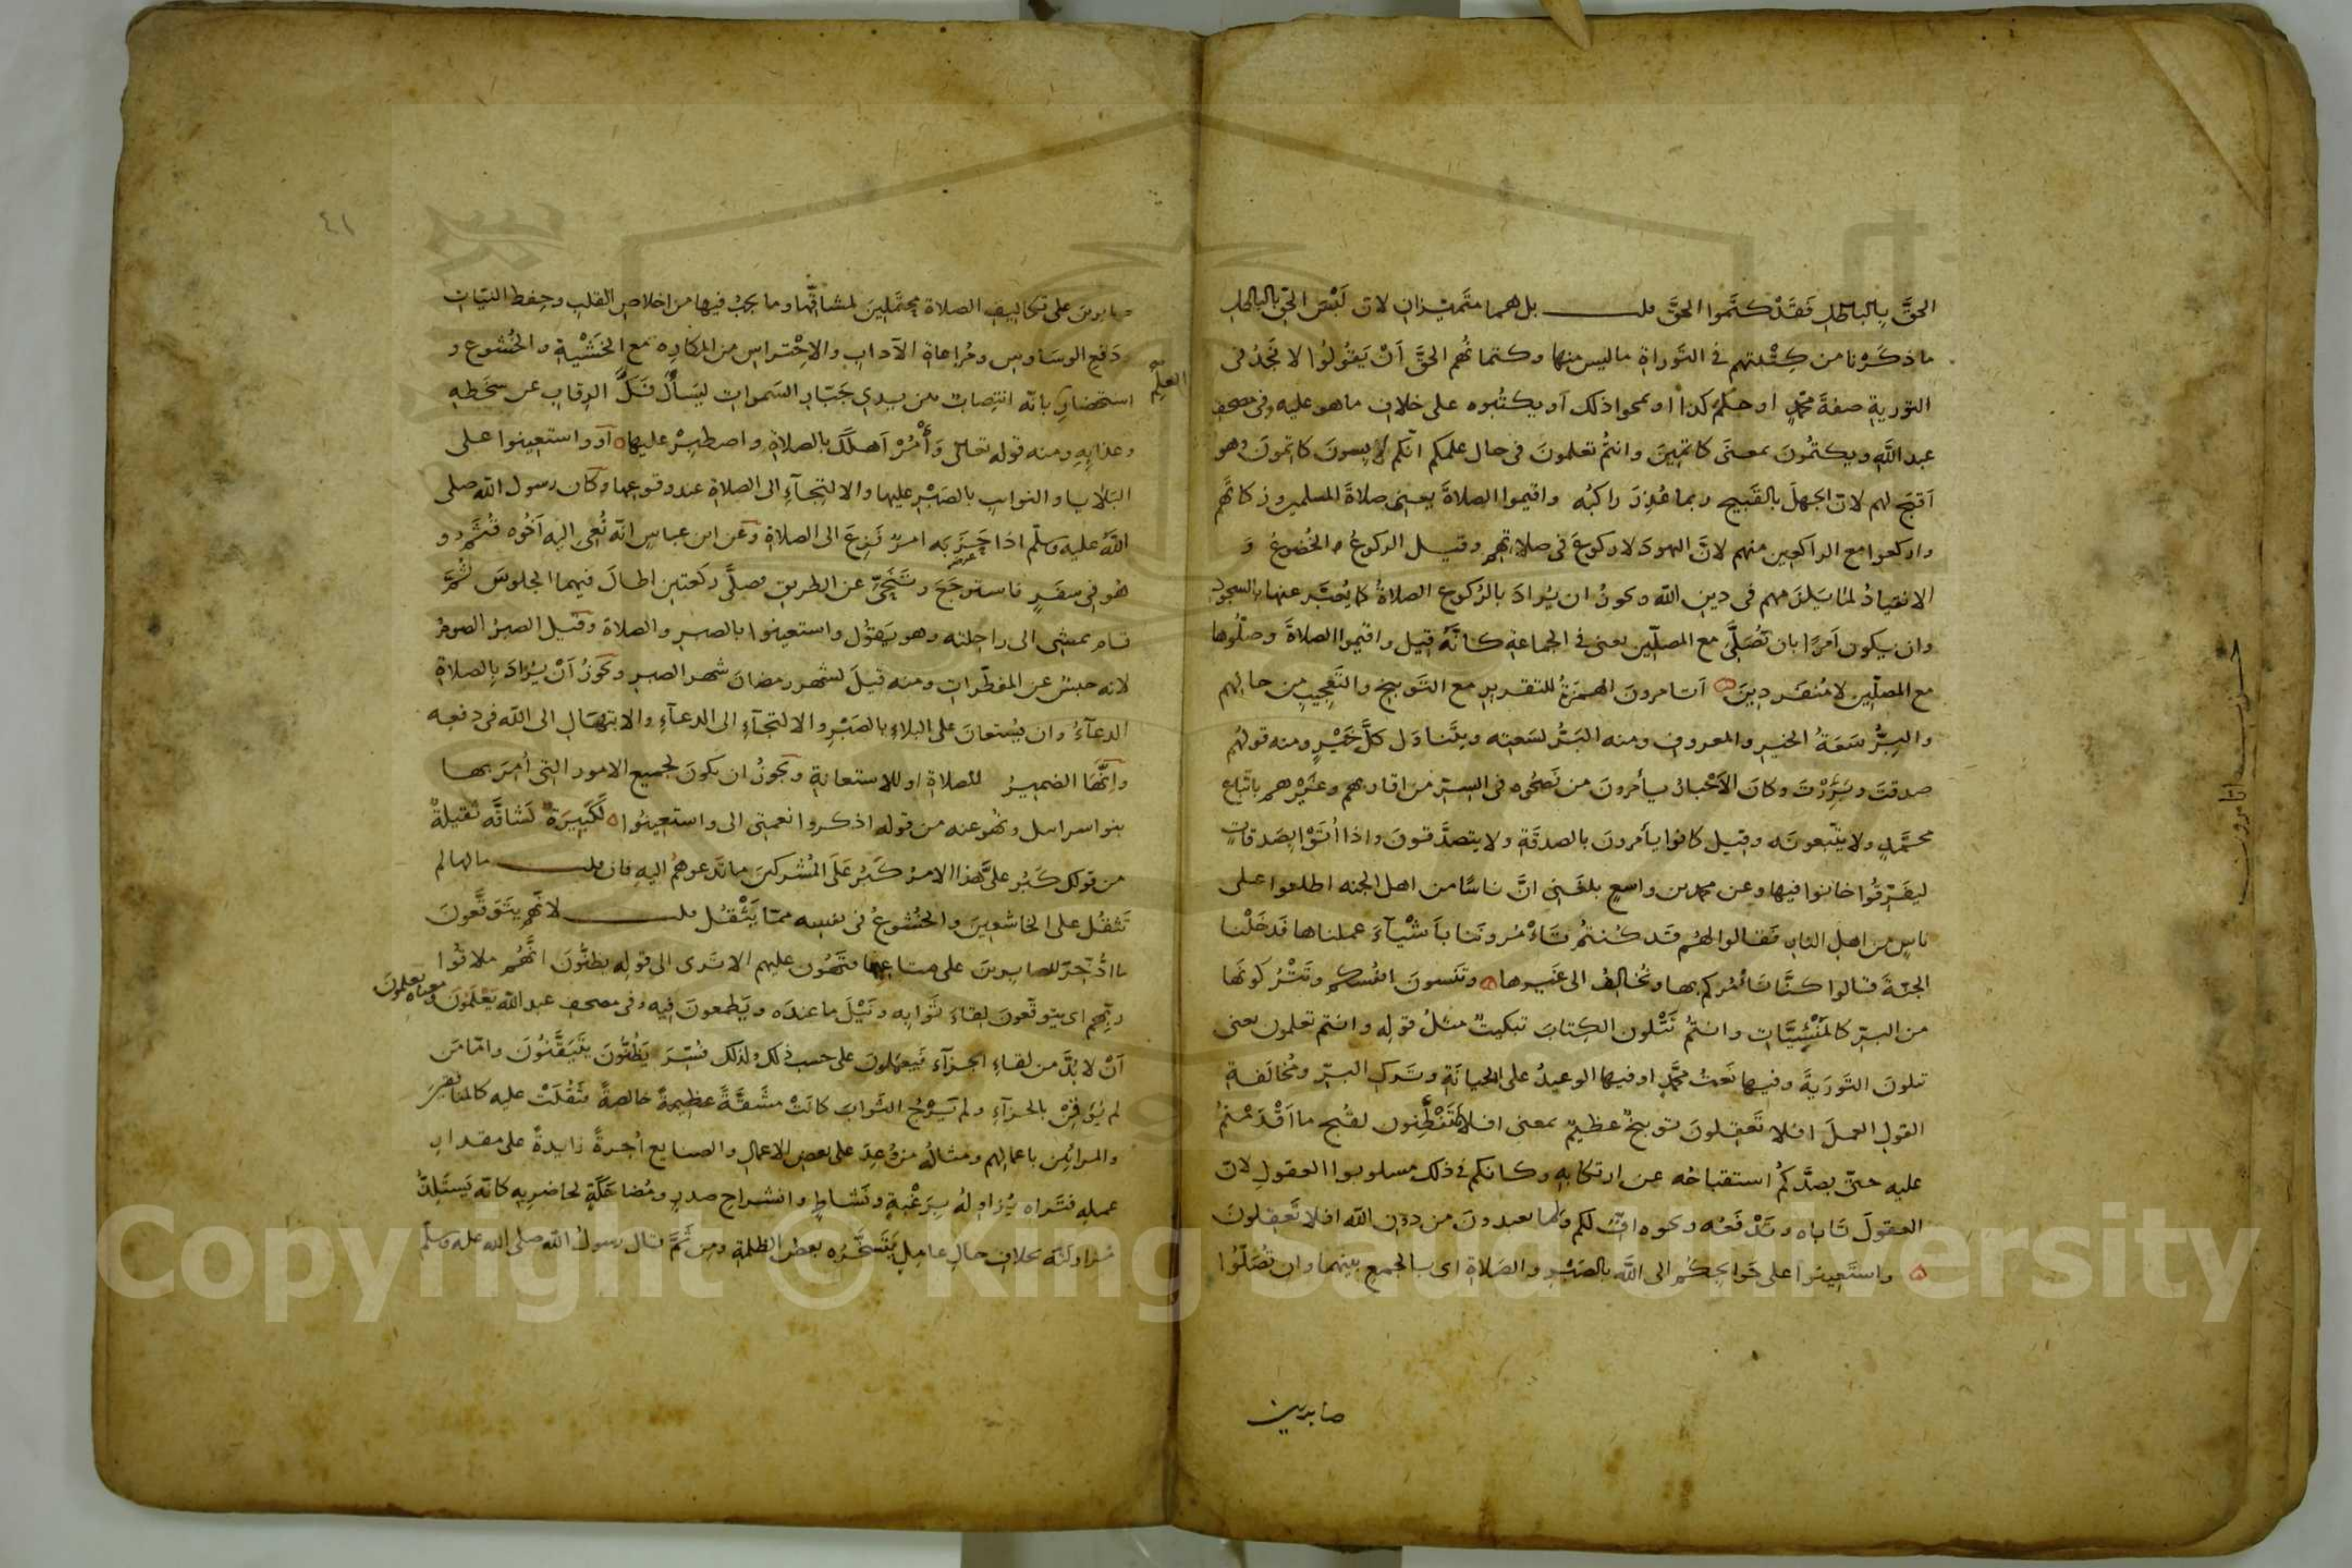 الحقَّ بِالباطلِ فَقَدْ كتَموا الحقَّ قلـــــت بل هما متميّزان لان لَبْسَ الحق بالباطل
ما ذكَرْنا من كِتْبتهم في التَّوراة ما ليس منها وكتمانُهم الحقَّ اَنْ يَقُولُوا لا نَجدُ فى
التوريةِ صفةَ محمّدٍ او حكمَ كذا او يمحوا ذلك اَو يكتُبوه على خلاف ما هو عليه وفى مصحف
عبد اللّٰه ويكتمُونَ بمعنَى كاتمِينَ وانتمُ تعلمونَ فى حال علمكم انّكم لابِسونَ كاتمونَ وهو
اَقبَح لهم لان الجهلَ بالقَبيح ربما عُذِرَ راكبُه واقيموا الصلاةَ يعنى صلاةَ المسلمين وزكاتَهم
واركعوا مع الراكعين منهم لانَّ اليهودَ لا ركوعَ فى صلاتهم وقيل الركوعُ الخُضوعُ وَ
الانقيادُ لما يَلزَمهم فى دين اللّٰه ويجوزُ ان يُرادَ بالرُكوع الصلاةُ كما يُعَبَّر عنها بالسجود
وان يكون اَمرًا بان تُصَلَّى مع المصلّين يعنى فى الجماعة كانَّهُ قيل واقيموا الصلاةَ وصلّوها
مع المصلّين لا مُنفَردِينَ اَتامرونَ الهمزةُ للتقرير مع التَوبيخ والتَّعجِيبِ مِن حالِهم
والبِرُّ سَعَةُ الخَير والمعروف ومنه البَرُّ لسَعتِه ويتَناوَل كلَّ خَيْرٍ ومنه قولهُم
صدقتَ وبَرَرْتَ وكانَ الاَحْبارُ يأمرونَ من نَصَحُوه فى السِرّ من اقاربهم وغَيْرهم باتّباع
محمَّدٍ ولا يتّبعونَه وقيل كانوا يأمرون بالصدقَةِ ولا يتصدَّقونَ واذا اُتَوْا بصَدقاتٍ
ليفَرّقُوا خانوا فيها وعن محمد بن واسعٍ بلغَنى انَّ ناسًا من اهل الجنه اطلعوا على
ناسٍ من اهل النار فقالوا لهُم قد كُنتمُ تَاْمُرونَنا بأَشْيآءَ عملناها فدَخَلْنا
الجنّةَ قالوا كنَّا نَأمُركم بها ونُخالِفُ الى غَيرها وتَنسونَ انفُسكم وتَتْرُكونَها
من البرّ كالمَنْسِيَّاتِ وانتمُ تَتْلون الكِتابَ تبكيتٌ مثلُ قولِه وانتم تعلمون يعنى
تلونَ التَورَيةَ وفيها نَعتُ محمَّدٍ او فيها الوعيدُ على الخيانَةِ وتَركِ البرّ ومُخالَفَةِ
القولِ العملَ افلا تَعقِلونَ توبيخٌ عظيمٌ بمعنى افلا تَتَفَطَّنون لقُبح ما اَقْدَمْتمُ
عليه حتّى يصدَّكمُ استقباحُه عن ارتكابِه وكانكم فى ذلك مسلوبوا العقولِ لان
العقولَ تَاباه وتَدْفَعُه ونحوه افٍّ لكم ولما تعبدونَ من دون اللّٰه افلا تَعقِلونَ
واستَعِينوا على حَوائِجكُم الى اللَّه بالصَبْرِ والصَلاةِ اى بالجمعِ بينهما وان تُصَلّوُا
صابرين
حزب اتامرون
٤١
صابرين على تكاليفِ الصلاة محتَمِلِينَ لمشاقّها وما يجبُ فيها من اخلاصِ القلبِ وحِفظ النيّات
ودَفع الوسَاوسِ ومُراعاة الآدابِ والاِحْتراسِ من المكاره مع الخَشْيةِ والخُشوعِ و
استحضار العِلْم بانّه انتِصابٌ بين يدى جَبّار السَموات ليَسأل فَكَّ الرقابِ عن سَخَطِه
وعذابِهِ ومنه قوله تعالى وَأْمُرْ اَهلَكَ بالصلاةِ واصطَبِرْ عليها او واستعينوا على
البَلايا والنوايب بالصَبْر عليها والالتِجآءِ الى الصلاةِ عند وقوعِها وكان رسول اللّٰه صلى
اللَّه عليه وسلّم اذا حَزَبَه امرٌ فَزِعَ الى الصلاة وعن ابن عباسٍ انّه نُعِى اليه اَخُوه قُثَمُ و
هُو فى سفَرٍ فاسترجَعَ وتَنَحَّى عن الطريق فصلَّى ركعتين اطالَ فيهما الجلوسَ ثُمَّ
قام يمشى الى راحلته وهو يَقوُل واستعينوا بالصبرِ والصلاة وقيل الصبرُ الصومُ
لانه حبسٌ عن المفطّراتِ ومنه قيلَ لشهر رمضانَ شهر الصبرِ ويجوزُ اَنْ يُرادَ بالصلاةِ
الدعآءُ وان يُستعانَ على البلاءِ بالصَبْرِ والالتجآءِ الى الدعآءِ والابتهَالِ الى اللّٰه فى دفعِه
وانَّهَا الضميرُ للصلاةِ او للاستعانةِ ويجوزُ ان يكونَ لجميع الامور التى اُمِرَ بها
بنو اسرايل ونُهوا عنه من قوله اذكروا نعمتِى الى واستعينُوا لَكَبيرَةٌ لَشاقَّه ثقيلةٌ
من قولك كَبُر علىَّ هذا الامرُ كَبُر عَلَى المُشركينَ ما تَدعوهُم اليهِ فان قلـــــت ما لها لم
تَثقُل على الخاشعِينَ والخُشوعُ فى نفسِه ممّا يَثْقُل قلـــــت لانَّهم يتَوقَّعونَ
ما ادُّخِرَ للصابرينَ على متاعبها فتَهُون عليهم الا تَرى الى قولِه يظنُّونَ انَّهُم ملاقُوا
ربّهم اى يتوقّعونَ لقاءَ ثَوابِه ونَيْلَ ما عندَه ويَطمعونَ فِيه وفى مصحف عبد اللّٰه يَعْلَمُونَ ومعناه يعلمونَ
اَنْ لا بُدَّ من لقاءِ الجزآءِ فيعمَلونَ على حسب ذلك ولذلك فُسّرَ يَظُنُّونَ يتَيَقَّنُونَ وامّا مَن
لم يُوقِنْ بالجزآءِ ولم يَرْجُ الثَوابَ كانَتْ مشَقَّةً عظيمةً خالصةً فثَقُلَتْ عليه كالمنافقينَ
والمرائِين باعمالِهم ومثالُه من وُعِدَ على بعضِ الاعمالِ والصنايع اُجرةً زايدةً على مقدارِ
عملِه فتَراه يُزاوِلُه بِرَغْبةٍ ونَشاطٍ وانشراحِ صدرٍ ومُضاحَكَةٍ لحاضريه كانه يَستَلِذُّ
مُزاولَتَه بخلافِ حالِ عاملٍ يَتَسَخَّرُه بعضُ الظلمةِ ومن ثَمَّ قال رسولُ اللّٰه صلى اللّٰه عليه وسلّم
Copyright © King Saud University